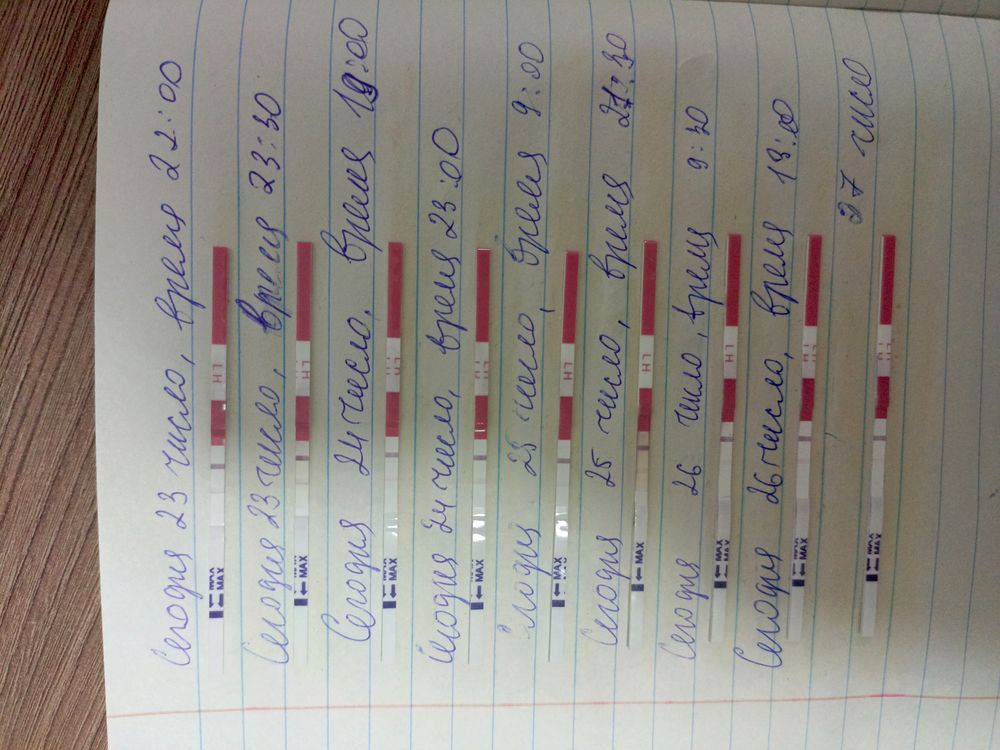 Сегодня 23 число, время 22:00
LH
← MAX
Сегодня 23 число, время 23:30
LH
← MAX
Сегодня 24 число. время 19:00
LH
← MAX
Сегодня 24 число, время 23:00
LH
← MAX
Сегодня 25 число, время 9:00
LH
← MAX
Сегодня 25 число, время
LH
← MAX
Сегодня 26 число, время 9:30
LH
← MAX
Сегодня 26 число, время
LH
← MAX
27 число
← MAX